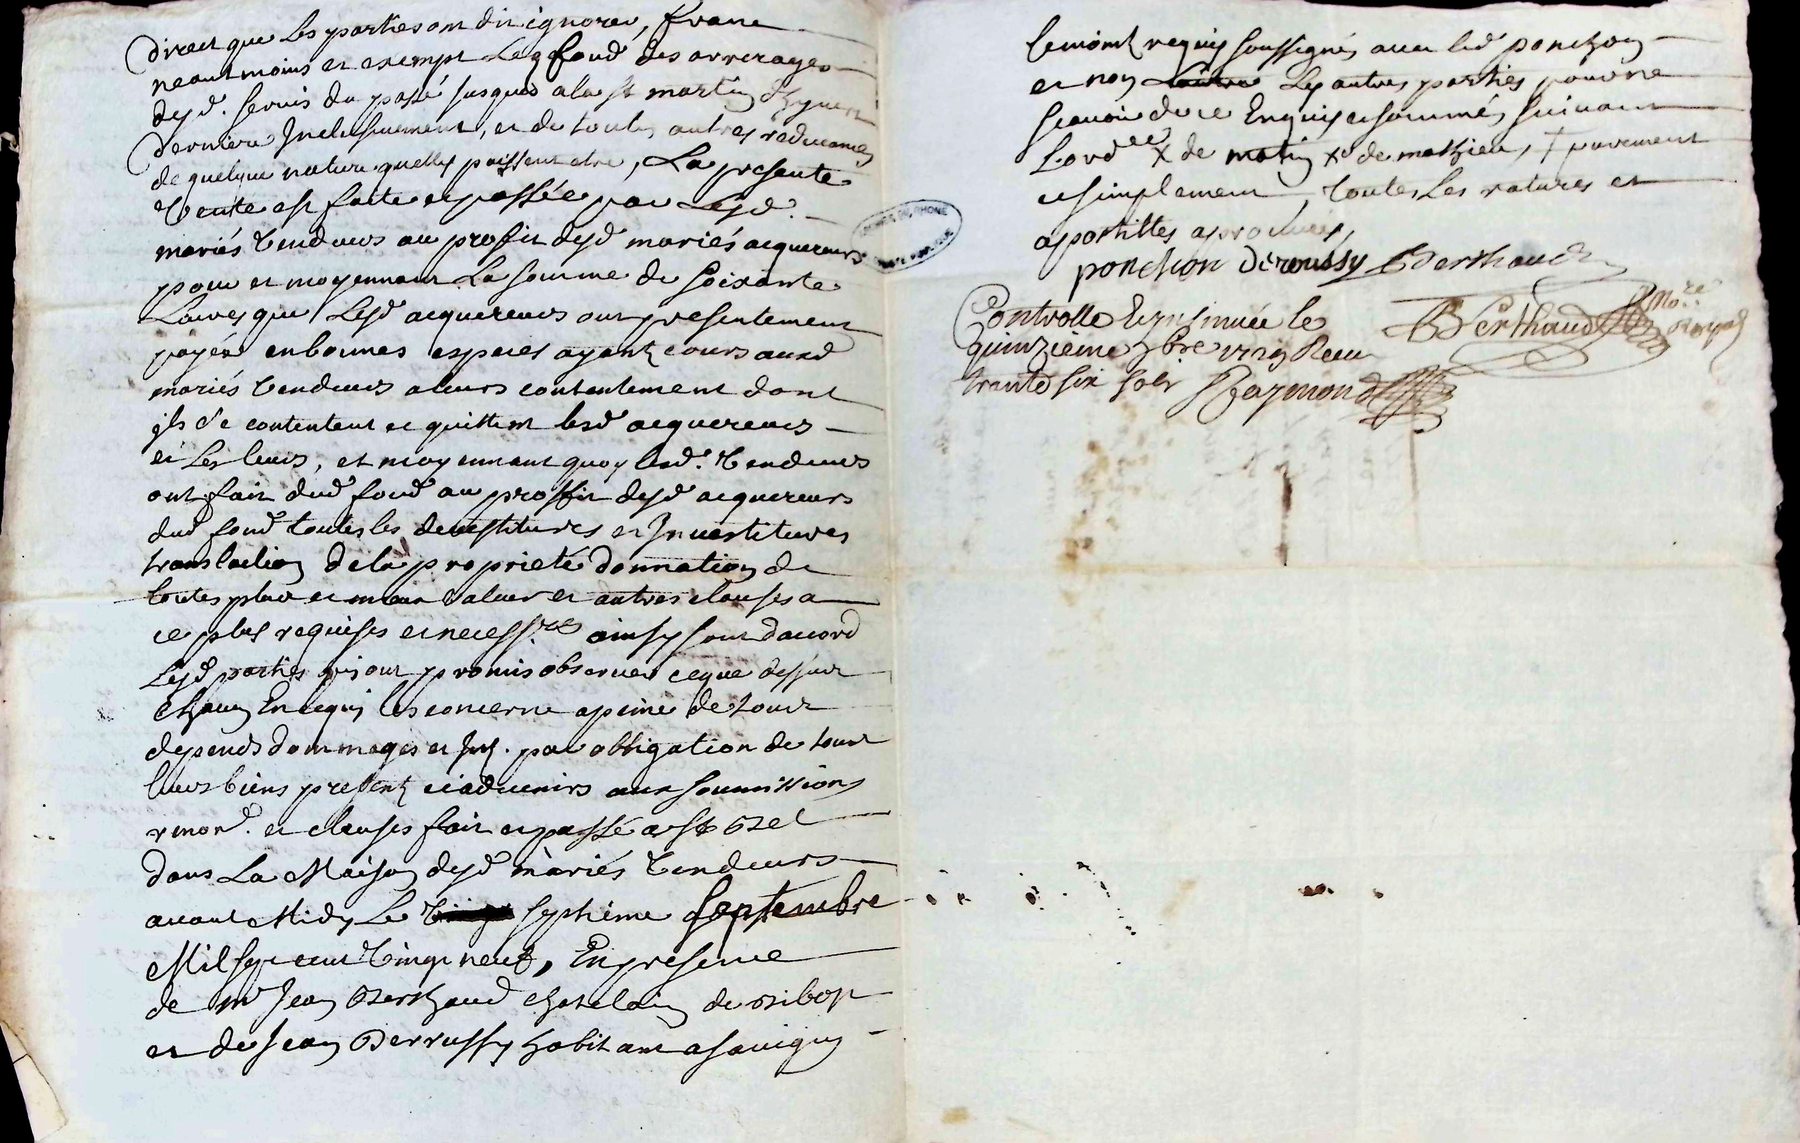 direct que les parties ont dit ignorer, franc
neantmoins et exempt led fond des arrerages
desd. servis du passé jusques a la st martin d'hyver
derniere Inclusivement, et de toutes autres redevances
de quelque nature quelles puissent etre, La presente
vente est faite et passée par Lesd.
mariés vendeurs au profit desd mariés acquereurs
pour et moyennant La somme de soixante
Livres que Lesd acquereurs ont presentement
payée en bonnes especes ayant cours auxd
mariés vendeurs a leurs contentement dont
ils se contentent et quittent lesd acquereurs
et Les leurs, et moyennant quoy lesd. vendeurs
ont fait dud fond au proffit desd acquereurs
dud fond toutes les devestitures et Investitures
translation de la proprieté donnation de
toutes plus et valeur et autres clauses a
ce plus requises et necessres ainsy sont daccord
Lesd parties qui ont promis observer ce que dessus
chacun En ce qui les concerne a peine de tous
depends dommages et Int. par obligation de tous
leurs biens presents et advenirs aux soumissions
renon. et clauses fait et passé a st Bel
dans La Maison desd mariés vendeurs
avant Midy Le septieme septembre
Mil sept cent vingt neuf, En presence
de mr Jean Berthaud chatelain de
et de Jean Derrussy habitant a savigny
temoins requis soussignés avec led ponchon
et non Les autres parties pour ne
scavoir de ce Enquis et sommés suivant
Lordce X de X de mathieu, + purement
et simplement, toutes Les ratures et
apostilles aprouvées,
ponchon Deroussy Berthaud
Berthaud Nore Royal
Controllé et insinuée le
quinzieme 7bre 1729 Receu
trente six sols Raymond